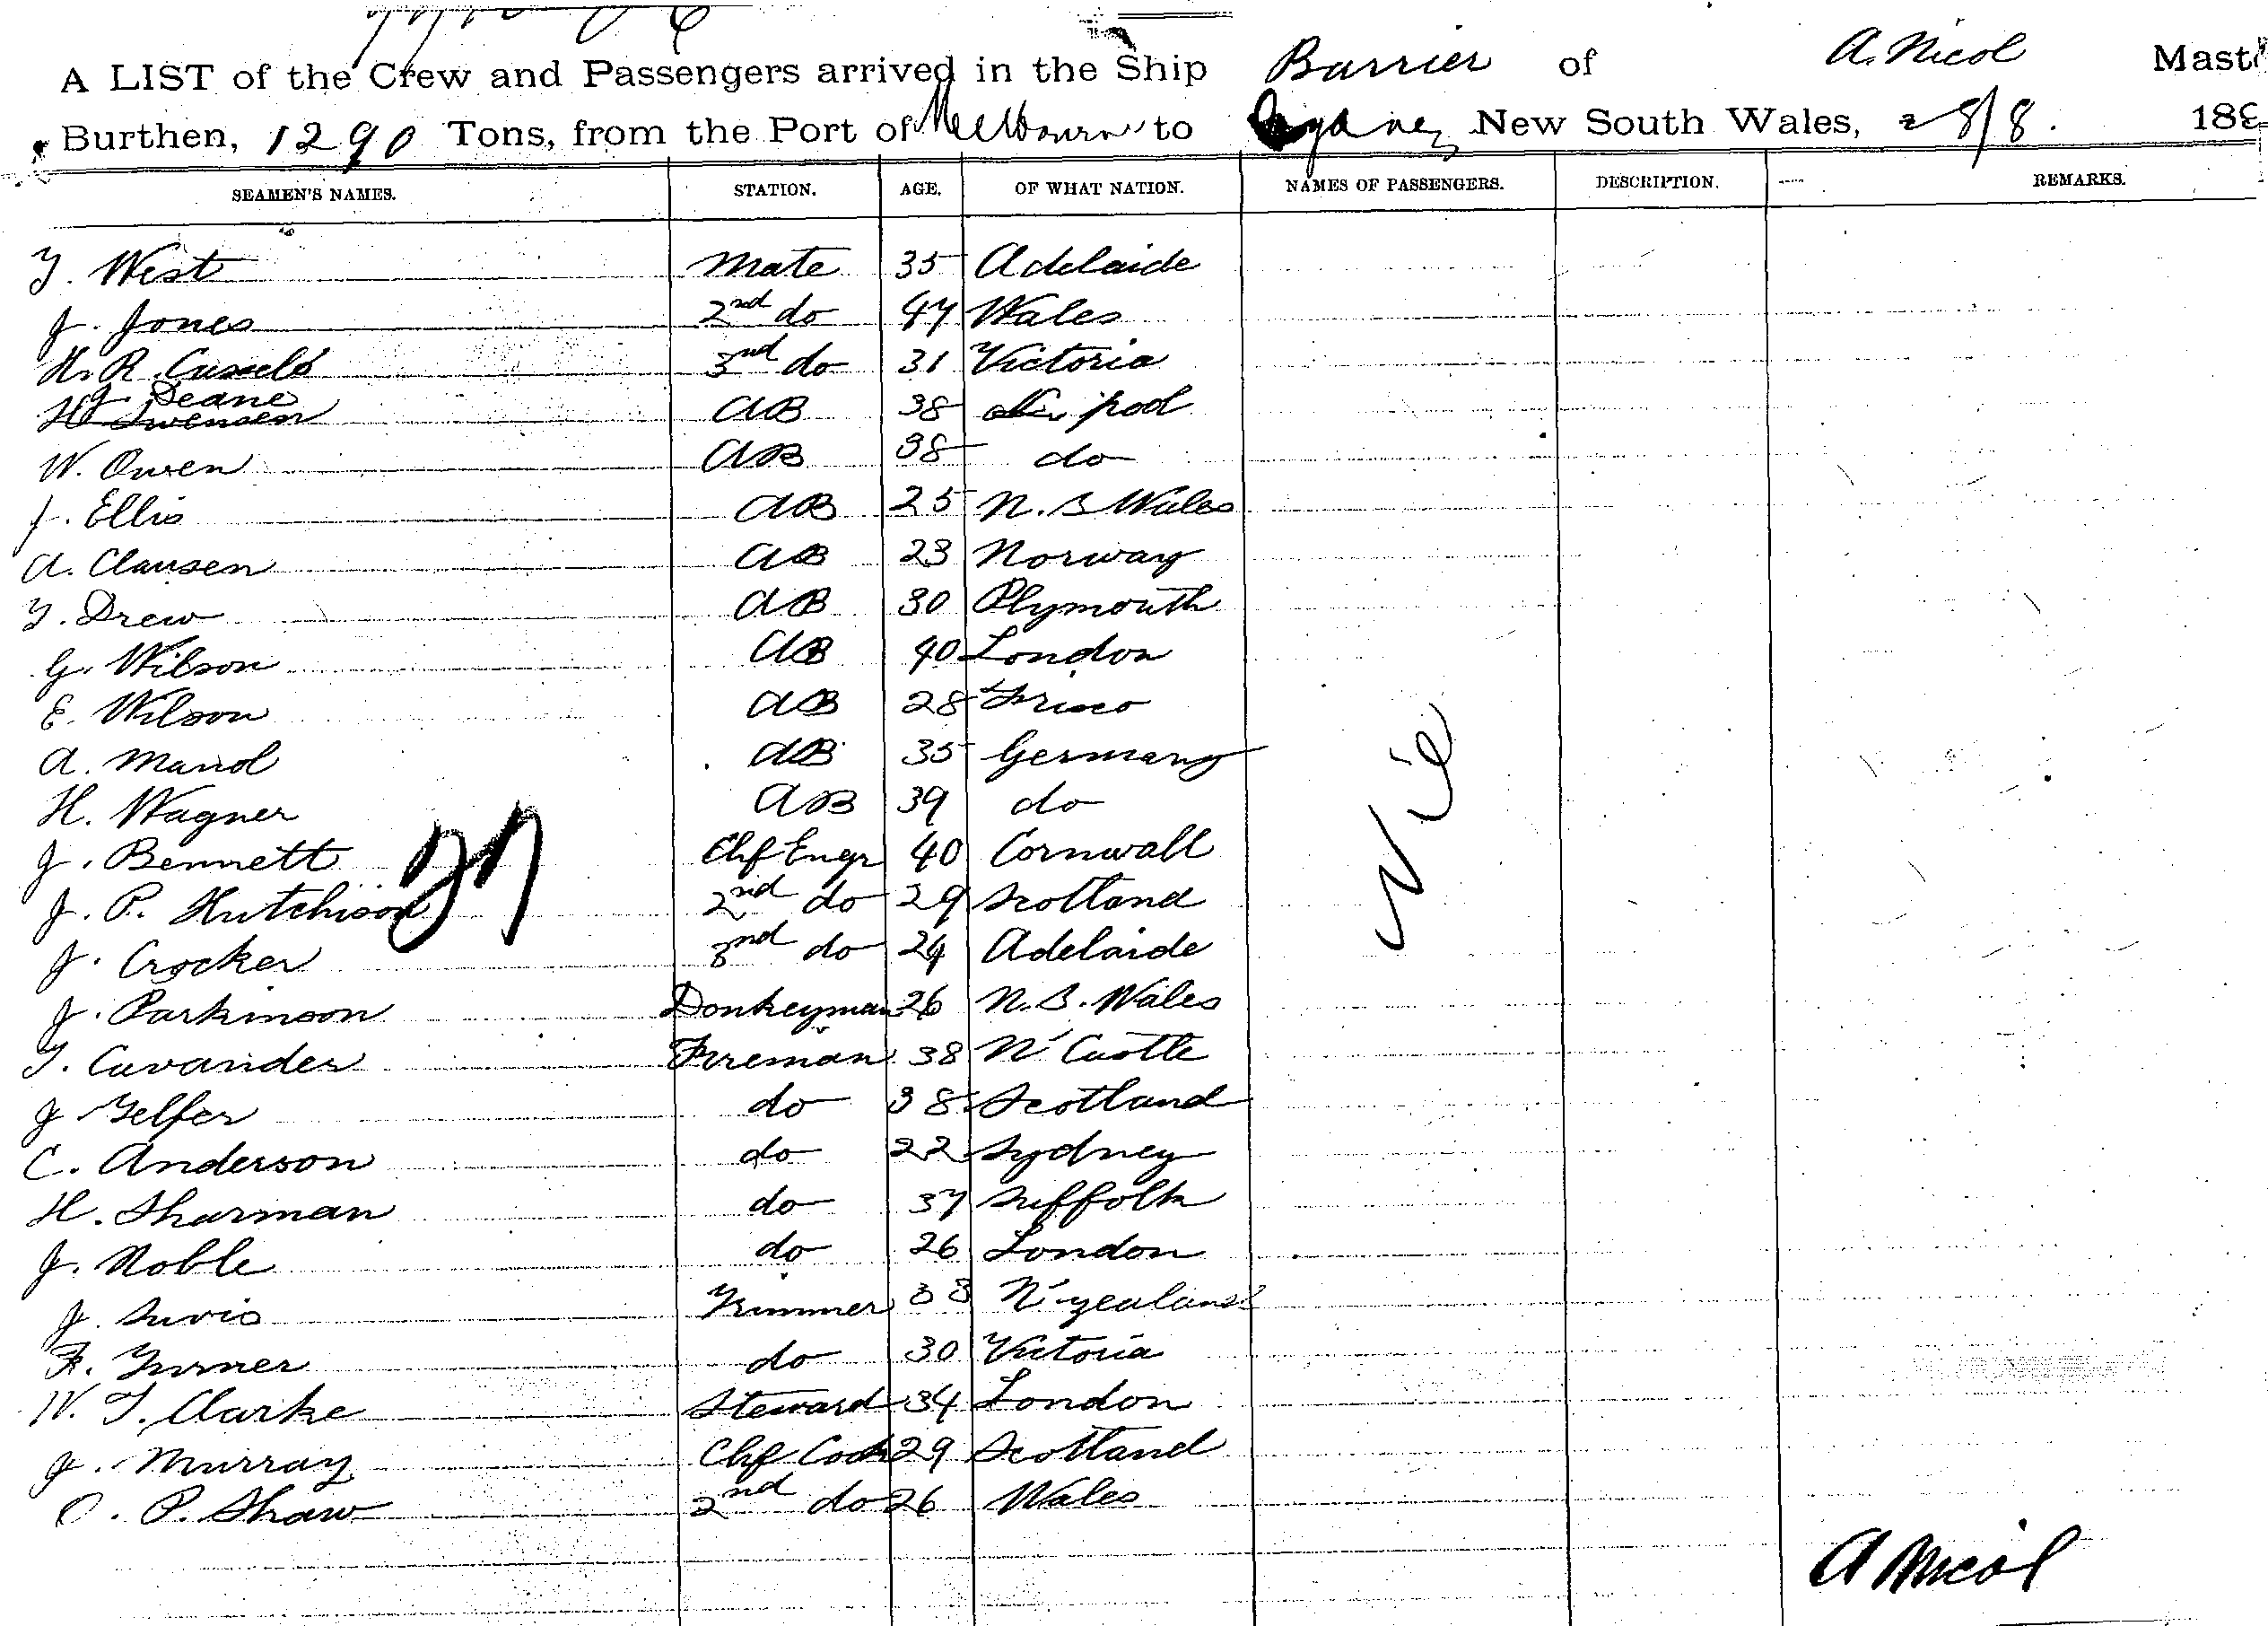 A LIST of the Crew and Passengers arrived in the Ship Barrier of A. Nicol Mast
Burthen, 1290 Tons, from the Port of Melbourne to Sydney, New South Wales, 28/8. 189
SEAMEN'S NAMES. STATION. AGE. OF WHAT NATION. NAMES OF PASSENGERS. DESCRIPTION. REMARKS.
T. West Mate 35 Adelaide
J. Jones 2nd do 47 Wales
H. R. 3nd do 31 Victoria
J. Deane
H Swensen AB 38 pool
W. Owen AB 38 do
J. Ellis AB 25 N. S Wales
A. Clausen AB 23 Norway
T. Drew AB 30 Plymouth
G. Wilson AB 40 London
E. Wilson AB 28 Frisco
A. AB 35 Germany
H. Wagner AB 39 do
J. Bennett Chf Engr 40 Cornwall
J. P. Hutchison 2nd do 29 Scotland
J. Crocker 3nd do 24 Adelaide
J. Parkinson Donkeyman 26 N. S. Wales
T. Cavander Fireman 38 N Castle
J Telfer do 38 Scotland
C. Anderson do 22 Sydney
H. Sharman do 37 Suffolk
J. Noble do 26 London
J. Trimmer 33 N Zealand
F. Turner do 30 Victoria
W. T. Clarke Steward 34 London
J. Murray Chf Cook 29 Scotland
O. P. Shaw 2nd do 26 Wales
Nil
27
A Nicol